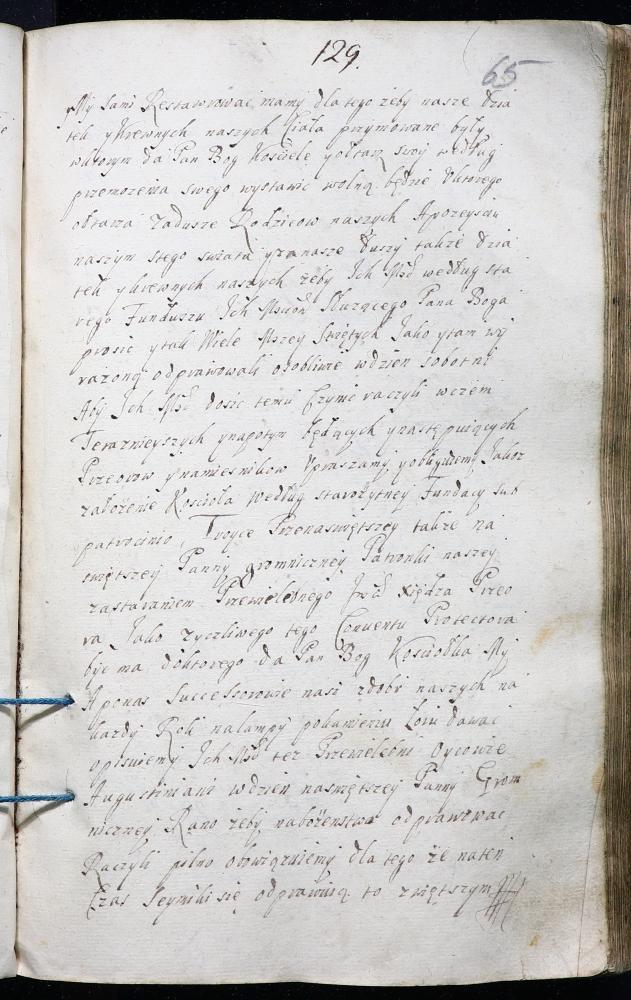 129.
65
My sami Restawrować mamy dla tego żeby nasze dzia
tek y krewnych naszych Ciała przymowane były
w ktorym da Pan Bog Kościele y ołtarz swoy według
przemożenia swego wystawić wolną będzie U ktorego
ołtarza za dusze Rodzicow naszych A po zeyściu
naszym s tego swiata y za nasze duszy także dzia
tek y krewnych naszych żeby Ich Mść według sta
rego Funduszu Ich Msciow służącego Pana Boga
prosić y tak Wiele Mszey Swiętych Jako y tam wy
rażono odprawowali osobliwie w dzien sobotni
Aby Ich Mść dosić temu Czynić raczyli w czem
Teraznieyszych y napotym będących y następuiących
Przeorow y namiesnikow Upraszamy y obliguiemy Jakoż
założenie Kościoła według starożytney Fundacy sub
patrocinio Troyce Przenaswiętszey także na
swiętszey Panny gromniczney Patronki naszey
za staraniem Przewielebnego Jmści Xiędza Przeo
ra Jako życzliwego tego Conventu Protectora
być ma do ktorego da Pan Bog Kosciołka My
A po nas Successorowie nasi z dobr naszych na
kardy Rok na lampy po kamieniu Łoiu dawać
opisuiemy Ich Mść też Przewielebni Oycowie
Augustiniani w dzien naswiętszey Panny Grom
niczney Rano żeby nabożenstwa odprawować
Raczyli pilno obowiązuiemy dla tego że na ten
Czas Seymiki się odprawuią to z więtszym